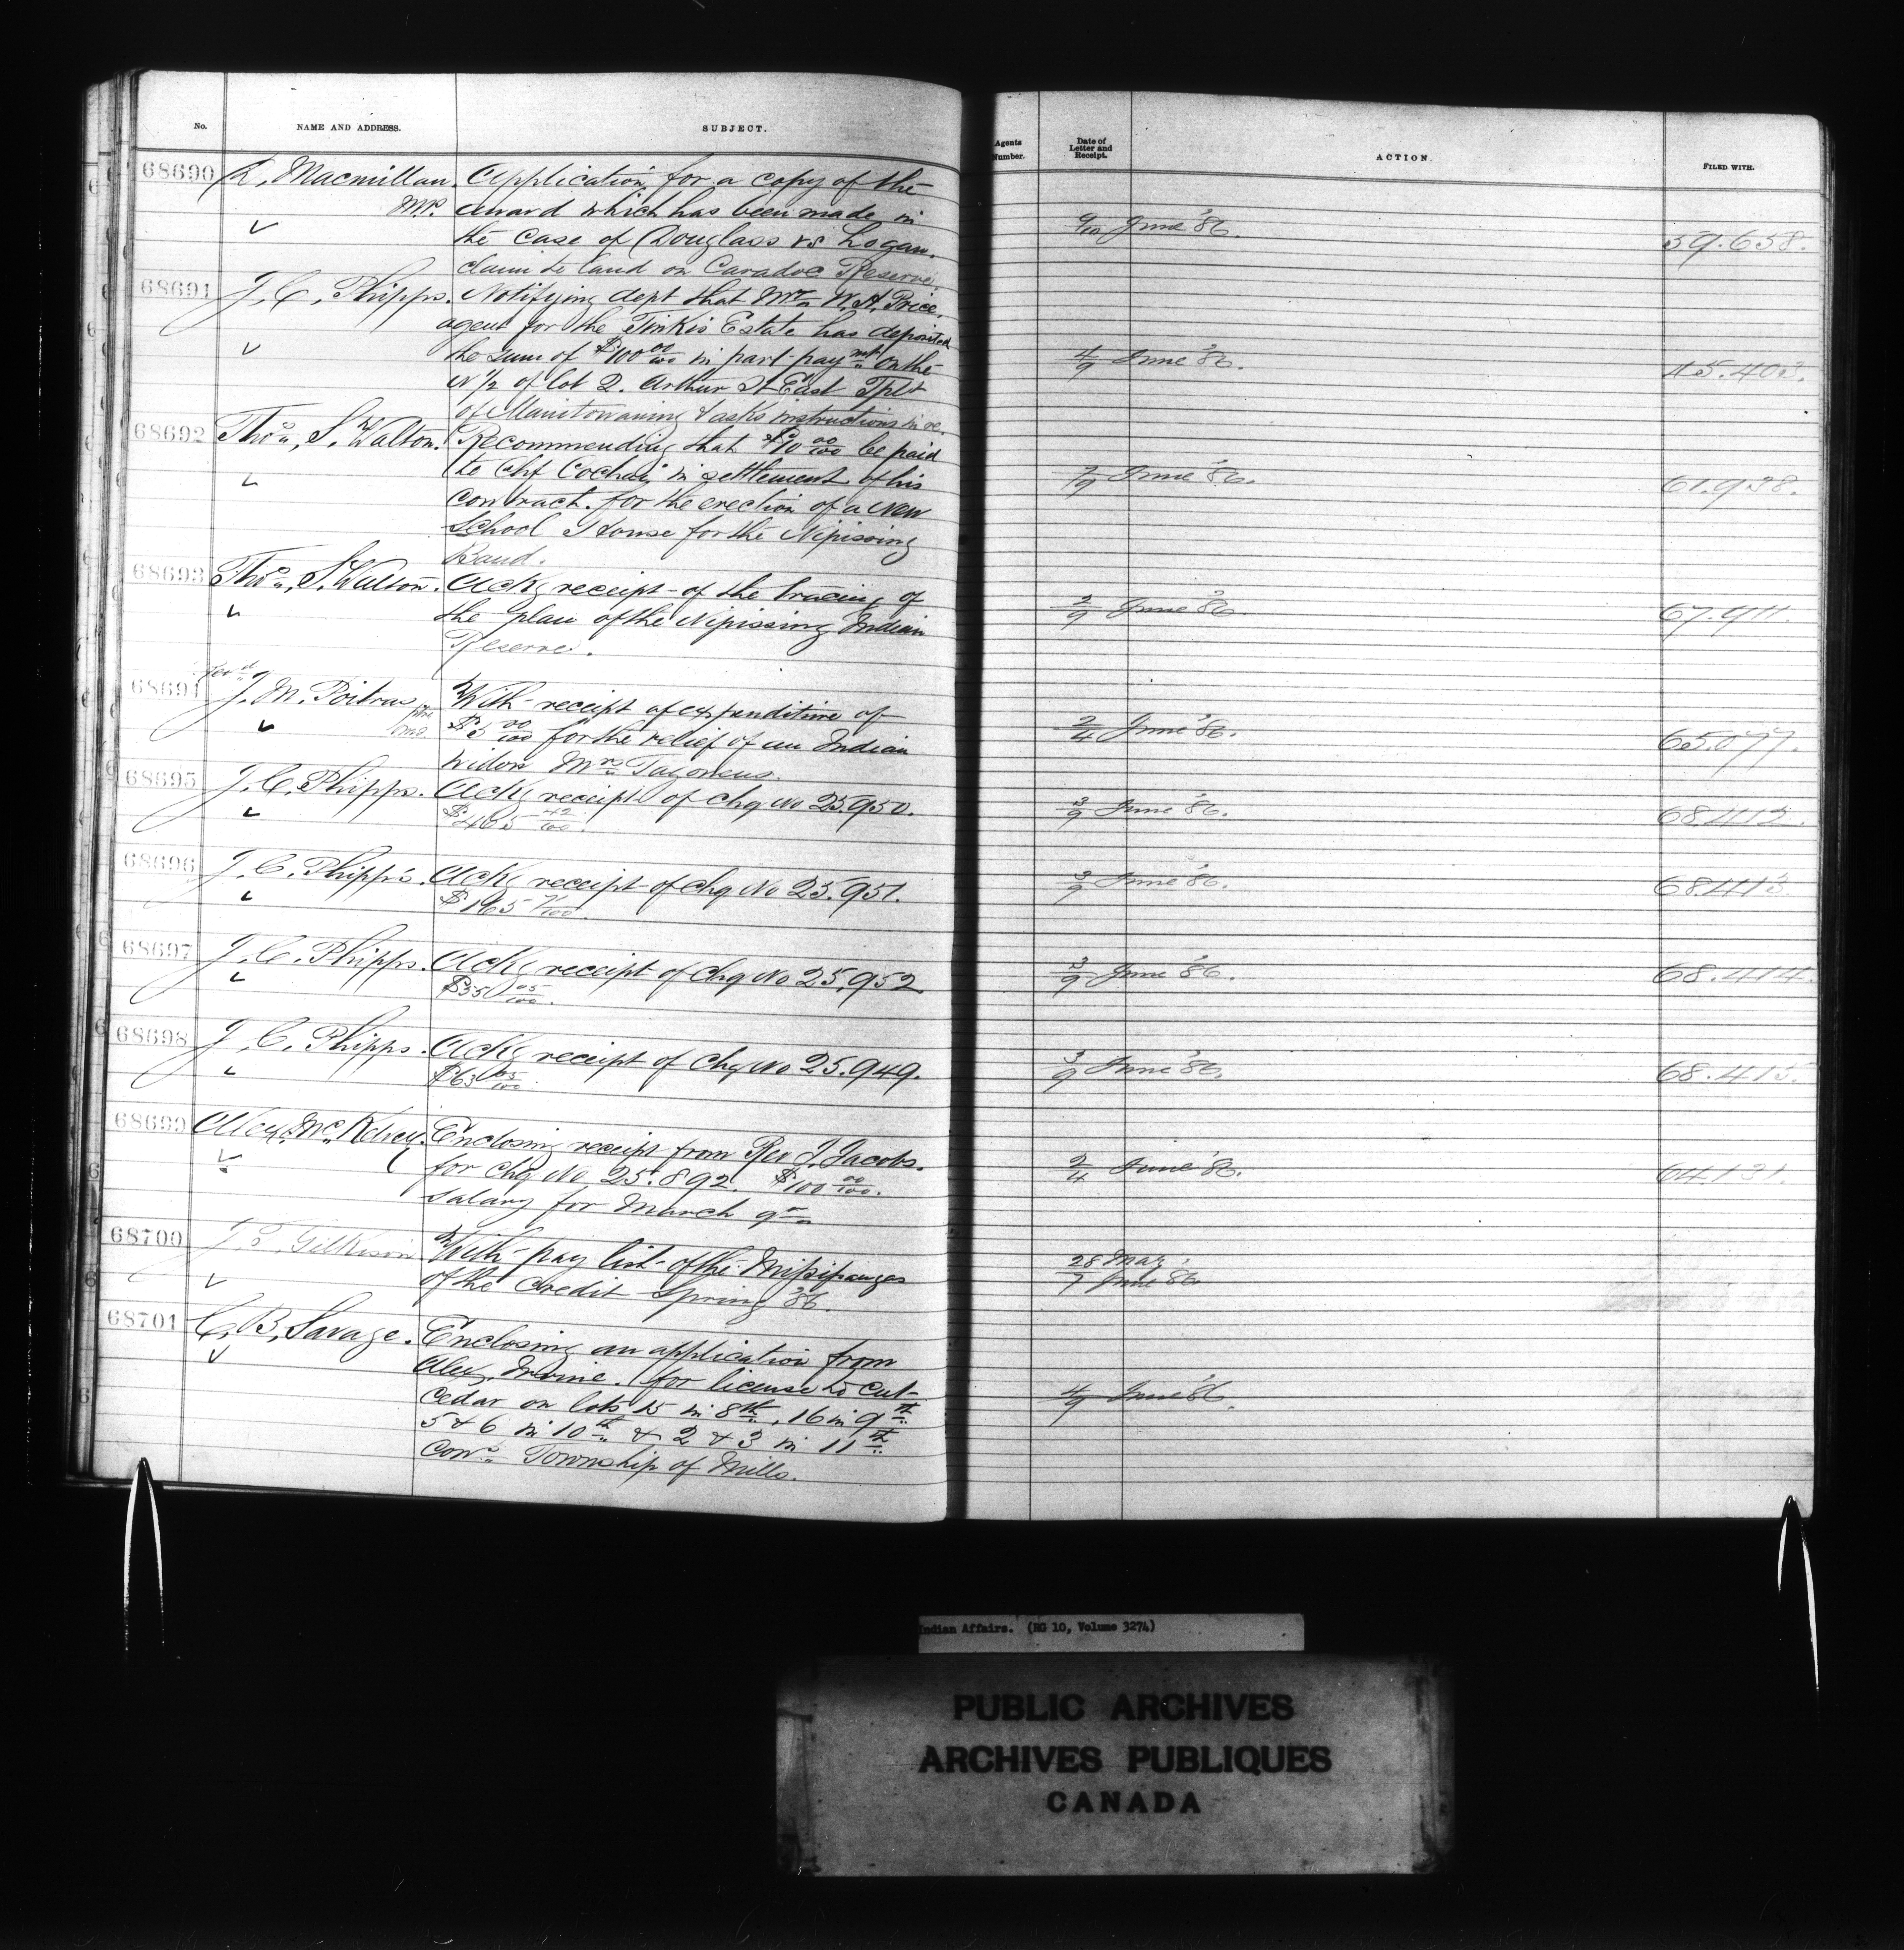 No. NAME AND ADDRESS. SUBJECT. Agents Number. Date of Letter and Receipt. ACTION. FILED WITH.
68690 Macmillan. Application for a copy of the
M.P. award which has been made in 9/10 June '86. 59.658.
the case of Douglass vs Logan.
claim to land on Caradoc Reserve.
68691 J. C. Phipps. Notifying dept that Mr W. A. Price,
agent for the Estate has deposited
the sum of $100 00/100 in part paymt on the 4/9 June '86. 15.403.
N 1/2 of lot 2. Arthur St East Tplt
of Manitowaning & asks instructions in re.
68692 Thos. S. Walton. Recommending that $10 00/100 be paid
to Chf in settlement of his 7/9 June '86. 61.938.
contract for the erection of a new
School House for the Nipissing
Band.
68693 Thos. S. Walton. Ackg receipt of the tracing of
the plan of the Nipissing Indian 2/9 June '86. 67.911.
Reserve.
Revd
68694 J. M. Poitras With receipt of expenditure of
$5 00/100 for the relief of an Indian 2/4 June '86. 65.077.
widow Mrs
68695 J. C. Phipps. Ackg receipt of chq No 25.950. 3/9 June '86. 68.412.
$465 42/100.
68696 J. C. Phipps. Ackg receipt of chq No 25.951. 3/9 June '86. 68.413.
$165 71/100.
68697 J. C. Phipps. Ackg receipt of chq No 25.952. 3/9 June '86. 68.414.
$35 05/100.
68698 J. C. Phipps. Ackg receipt of chq No 25.949. 3/9 June '86. 68.415.
$63 05/100.
68699 Alex. McKelvey. Enclosing receipt from Rev J. Jacobs.
for chq No. 25.892. $100 00/100. 2/4 June '86. 64.131.
Salary for March qr
68700 J. T. Gilkison With pay list of the Missisaugas 28 May
of the Credit Spring '86. 7 June '86
68701 C. B. Savage. Enclosing an application from
Alex. Irvine. for license to cut
Cedar on lots 15 in 8th, 16 in 9th 4/9 June '86.
5 & 6 in 10th & 2 & 3 in 11th
Cons. Township of Mills.
Indian Affairs. (RG 10, Volume 3274)
PUBLIC ARCHIVES
ARCHIVES PUBLIQUES
CANADA